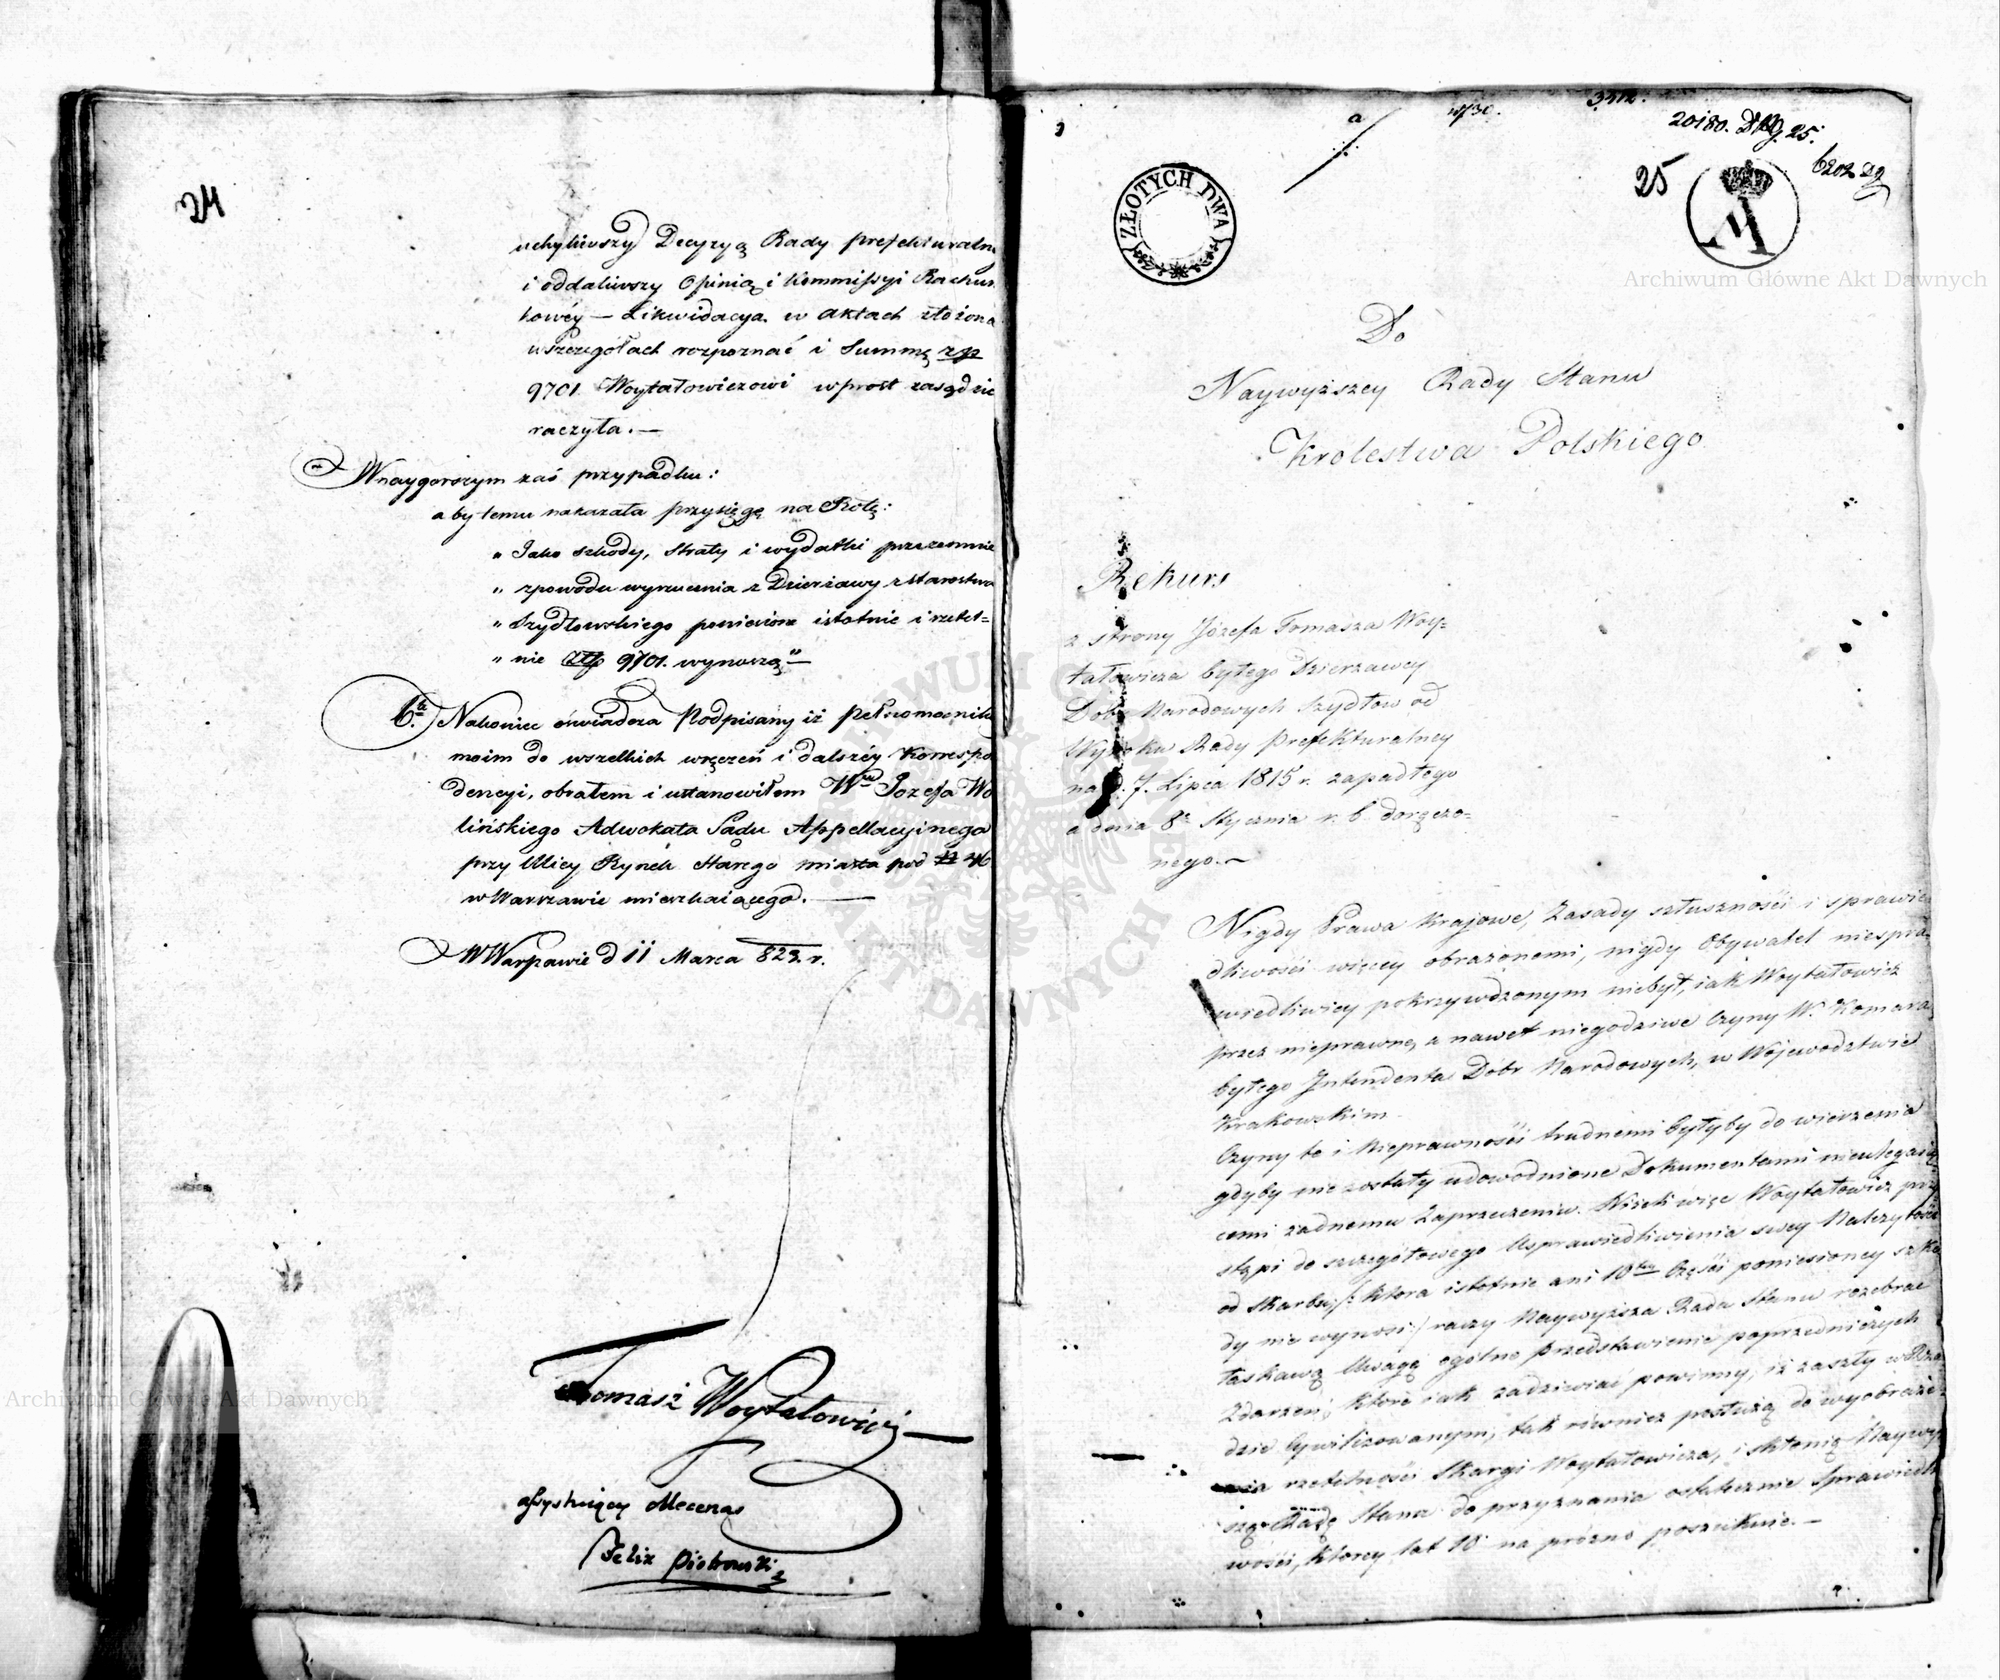 24
uchyliwszy Decyzyą Rady prefekturalney
i oddaliwszy Opinią i Kommissyi Rachun
kowéy — Likwidacya w aktach złożona
w szczegółach rozpoznać i Summę zp
9701 Woytałowiczowi wprost zasądzić
raczyła. —
W naygorszym zaś przypadku:
aby temu nakazała przysięgę na Rotę:
„ Jako szkody, straty i wydatki przezemnie
„ zpowodu wyrzucenia z Dzierżawy z starostwa
„ Szydłowskiego poniesione istotnie i rzetel=
„ nie Złp 9701. wynoszą" —
6.te Nakoniec oświadcza Podpisany iż pełnomocnik
moim do wszelkich wręczeń i dalszéy korrespo
dencyi, obrałem i ustanowiłem Wgo Jozefa Wo
lińskiego Adwokata Sądu Appellacyinego
przy Ulicy Rynek Starego miasta pod N 46
w Warszawie mieszkaiącego. —
W Warszawie d 11 Marca 823. r.
Tomasz Woytałowicz
assystuiący Mecenas
Felix Piotrowski
a
1730.
3412.
20180. 25.
6202
25
ZŁOTYCH DWA
Archiwum Główne Akt Dawnych
Do
Naywyższey Rady Stanu
Krolestwa Polskiego
Rekurs
z strony Józefa Tomasza Woy=
tałowicza byłego Dzierzawcy
Dóbr Narodowych Szydłow od
Wyroku Rady Prefekturalney
na d. 7. Lipca 1815 r. zapadłego
a dnia 8o Stycznia r. b. doręczo=
nego. —
Nigdy Prawa Krajowe, Zasady słuszności i sprawie
dliwości więcey obrażonemi, nigdy Obywatel niespra
wiedliwiey pokrzywdzonym niebył, iak Woytałowicz
przez nieprawne, a nawet niegodziwe Czyny W. Komara
byłego Intendenta Dóbr Narodowych, w Woiewodztwie
Krakowskim.
Czyny te i Nieprawności trudnemi byłyby do wierzenia
gdyby nie zostały udowodnione Dokumentami nieulegaią
cemi żadnemu Zaprzeczeniu. Niżeli więc Woytałowicz przy=
stąpi do szczegółowego Usprawiedliwienia swey Należytości
od Skarbu, /: która istotnie ani 10tey Części poniesioney szko
dy nie wynosi :/ raczy Naywyższa Rada Stanu rozebrać
łaskawą Uwagą ogólne przedstawienie poprzedniczych
Zdarzeń, które iak zadziwiać powinny, iż zaszły w Rzą
dzie Cywilizowanym, tak również posłużą do wyobraże=
nia rzetelności Skargi Woytałowicza, i skłonią Naywyż
szą Radę Stanu do przyznania ostatecznie Sprawiedli
wości, ktorey lat 10 na próżno poszukuie. —
Archiwum Główne Akt Dawnych
ARCHIWUM GŁÓWNE AKT DAWNYCH